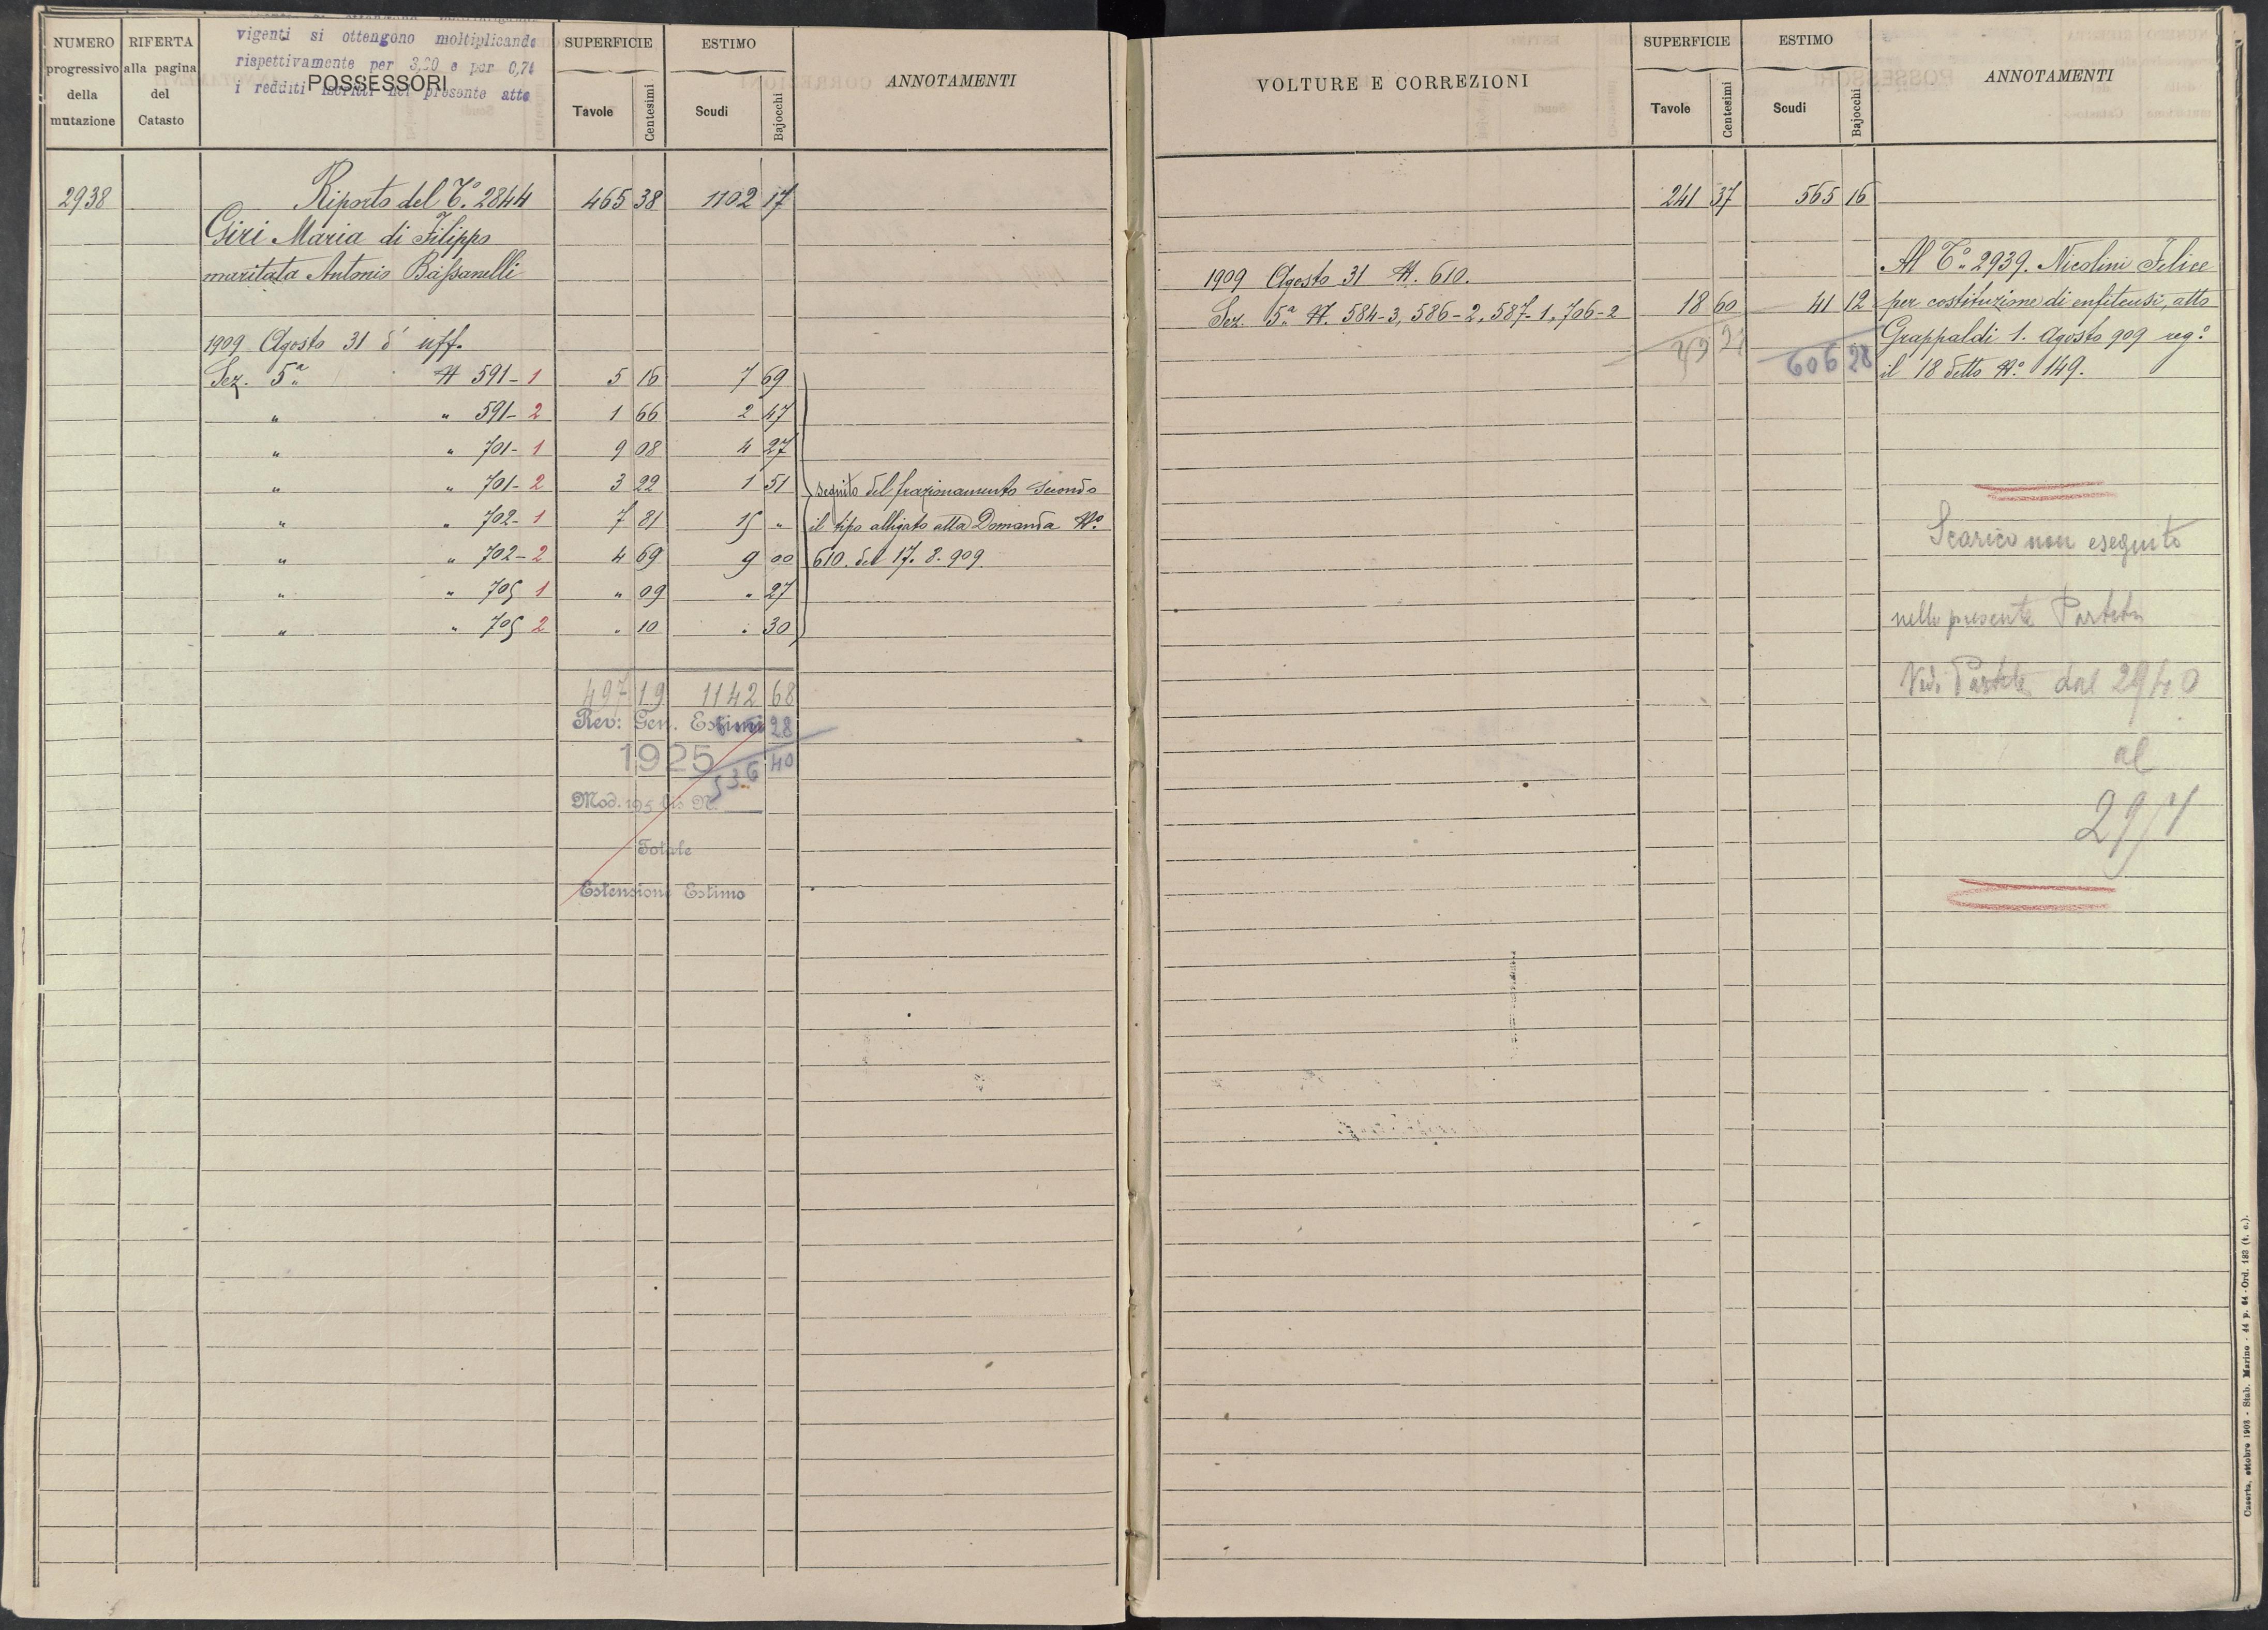 NUMERO progressivo della mutazione
RIFERTA alla pagina del Catasto
vigenti si ottengono moltiplicando
rispettivamente per 3,20 e per 0,74
i redditi iscritti nel presente atto
POSSESSORI
SUPERFICIE
Tavole Centesimi
ESTIMO
Scudi Bajocchi
ANNOTAMENTI
2938 Riporto del T.° 2844 465 38 1102 17
Giri Maria di Filippo
maritata Antonio Bassanelli
1909 Agosto 31 d' uff.
Sez. 5ª N 591-1 5 16 7 69
" " 591-2 1 66 2 47
" " 701-1 9 08 4 27
" " 701-2 3 22 1 51 seguito del frazionamento secondo
" " 702-1 7 81 15 " il tipo alligato alla Domanda N.°
" " 702-2 4 69 9 00 610. del 17. 8. 909.
" " 705 1 " 09 " 27
" " 705 2 " 10 " 30
497 19 1142 68
Rev: Gen. Estimi 28
1925 536 40
Mod. 195 bis N.
Totale
Estensione Estimo
VOLTURE E CORREZIONI
SUPERFICIE
Tavole Centesimi
ESTIMO
Scudi Bajocchi
ANNOTAMENTI
241 37 565 16
Al T.° 2939. Nicolini Felice
1909 Agosto 31 N. 610.
Sez. 5ª N. 584-3, 586-2, 587-1, 706-2 18 60 41 12 per costituzione di enfiteusi, atto
606 28 Grappaldi 1. Agosto 909 reg.°
il 18 detto N.° 149.
Scarico non eseguito
nella presente Partita
Vedi Partite dal 2940
al
Caserta, ottobre 1908 - Stab. Marino - 44 p. 64 - Ord. 183 (t. c.).